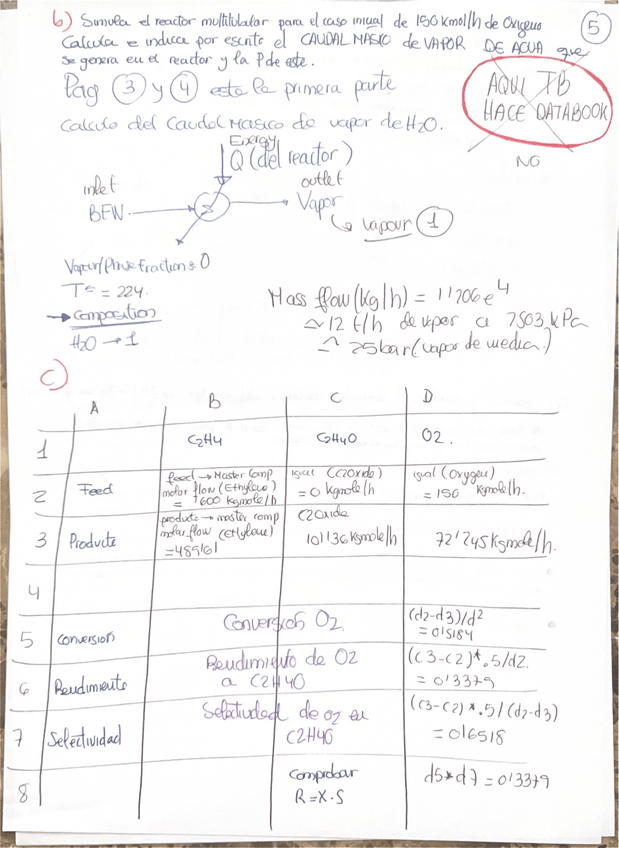 b) Simula el reactor multitubular para el caso inicial de 150 kmol/h de Oxígeno
Calcula e indica por escrito el CAUDAL MASICO de VAPOR DE AGUA que
se genera en el reactor y la P de este.
5
Pag 3 y 4 esta la primera parte
AQUI TB
HACE DATABOOK
NO
Calculo del Caudal Masico de vapor de H2O.
Energy
Q (del reactor)
inlet
BFW
outlet
Vapor
Vapour 1
Vapour/Phase fraction = 0
Tª = 224.
→ Composition
H2O → 1
Mass flow (Kg/h) = 1'1706e4
~ 12 t/h de vapor a 2503 kPa
~ 25 bar (vapor de media)
c)
A B C D
1 C2H4 C2H4O O2.
2 Feed
feed → Master Comp
molar flow (Ethylene)
= 1600 Kgmole/h
igual (C2Oxide)
= 0 Kgmole/h
igual (Oxygen)
= 150 Kgmole/h.
3 Producte
producte → master comp
molar flow (Ethylene)
C2Oxide
101'36 Kgmole/h
72'245 Kgmole/h.
4
5 Conversion
Conversion O2
(d2-d3)/d2
= 0'5184
6 Rendimiento
Rendimiento de O2
a C2H4O
(C3-C2)*.5/d2.
= 0'3379
7 Selectividad
Selectividad de O2 en
C2H4O
(C3-C2)*.5/(d2-d3)
= 0'6518
8
Comprobar
R=X·S
d5*d7 = 0'3379